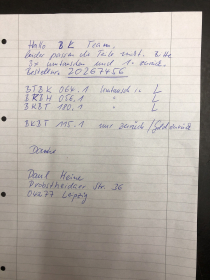 Hallo BK Team,
leider passen die Teile nicht. Bitte
3x umtauschen und 1x zurück.
Bestellnr. 20267456
BTBK 064.1 Umtausch in L
BRBH 056.1 " L
BKBT 180.1 " L
BKBT 115.1 nur zurück / Geld zurück
Danke
Paul Heine
Str. 36
04277 Leipzig